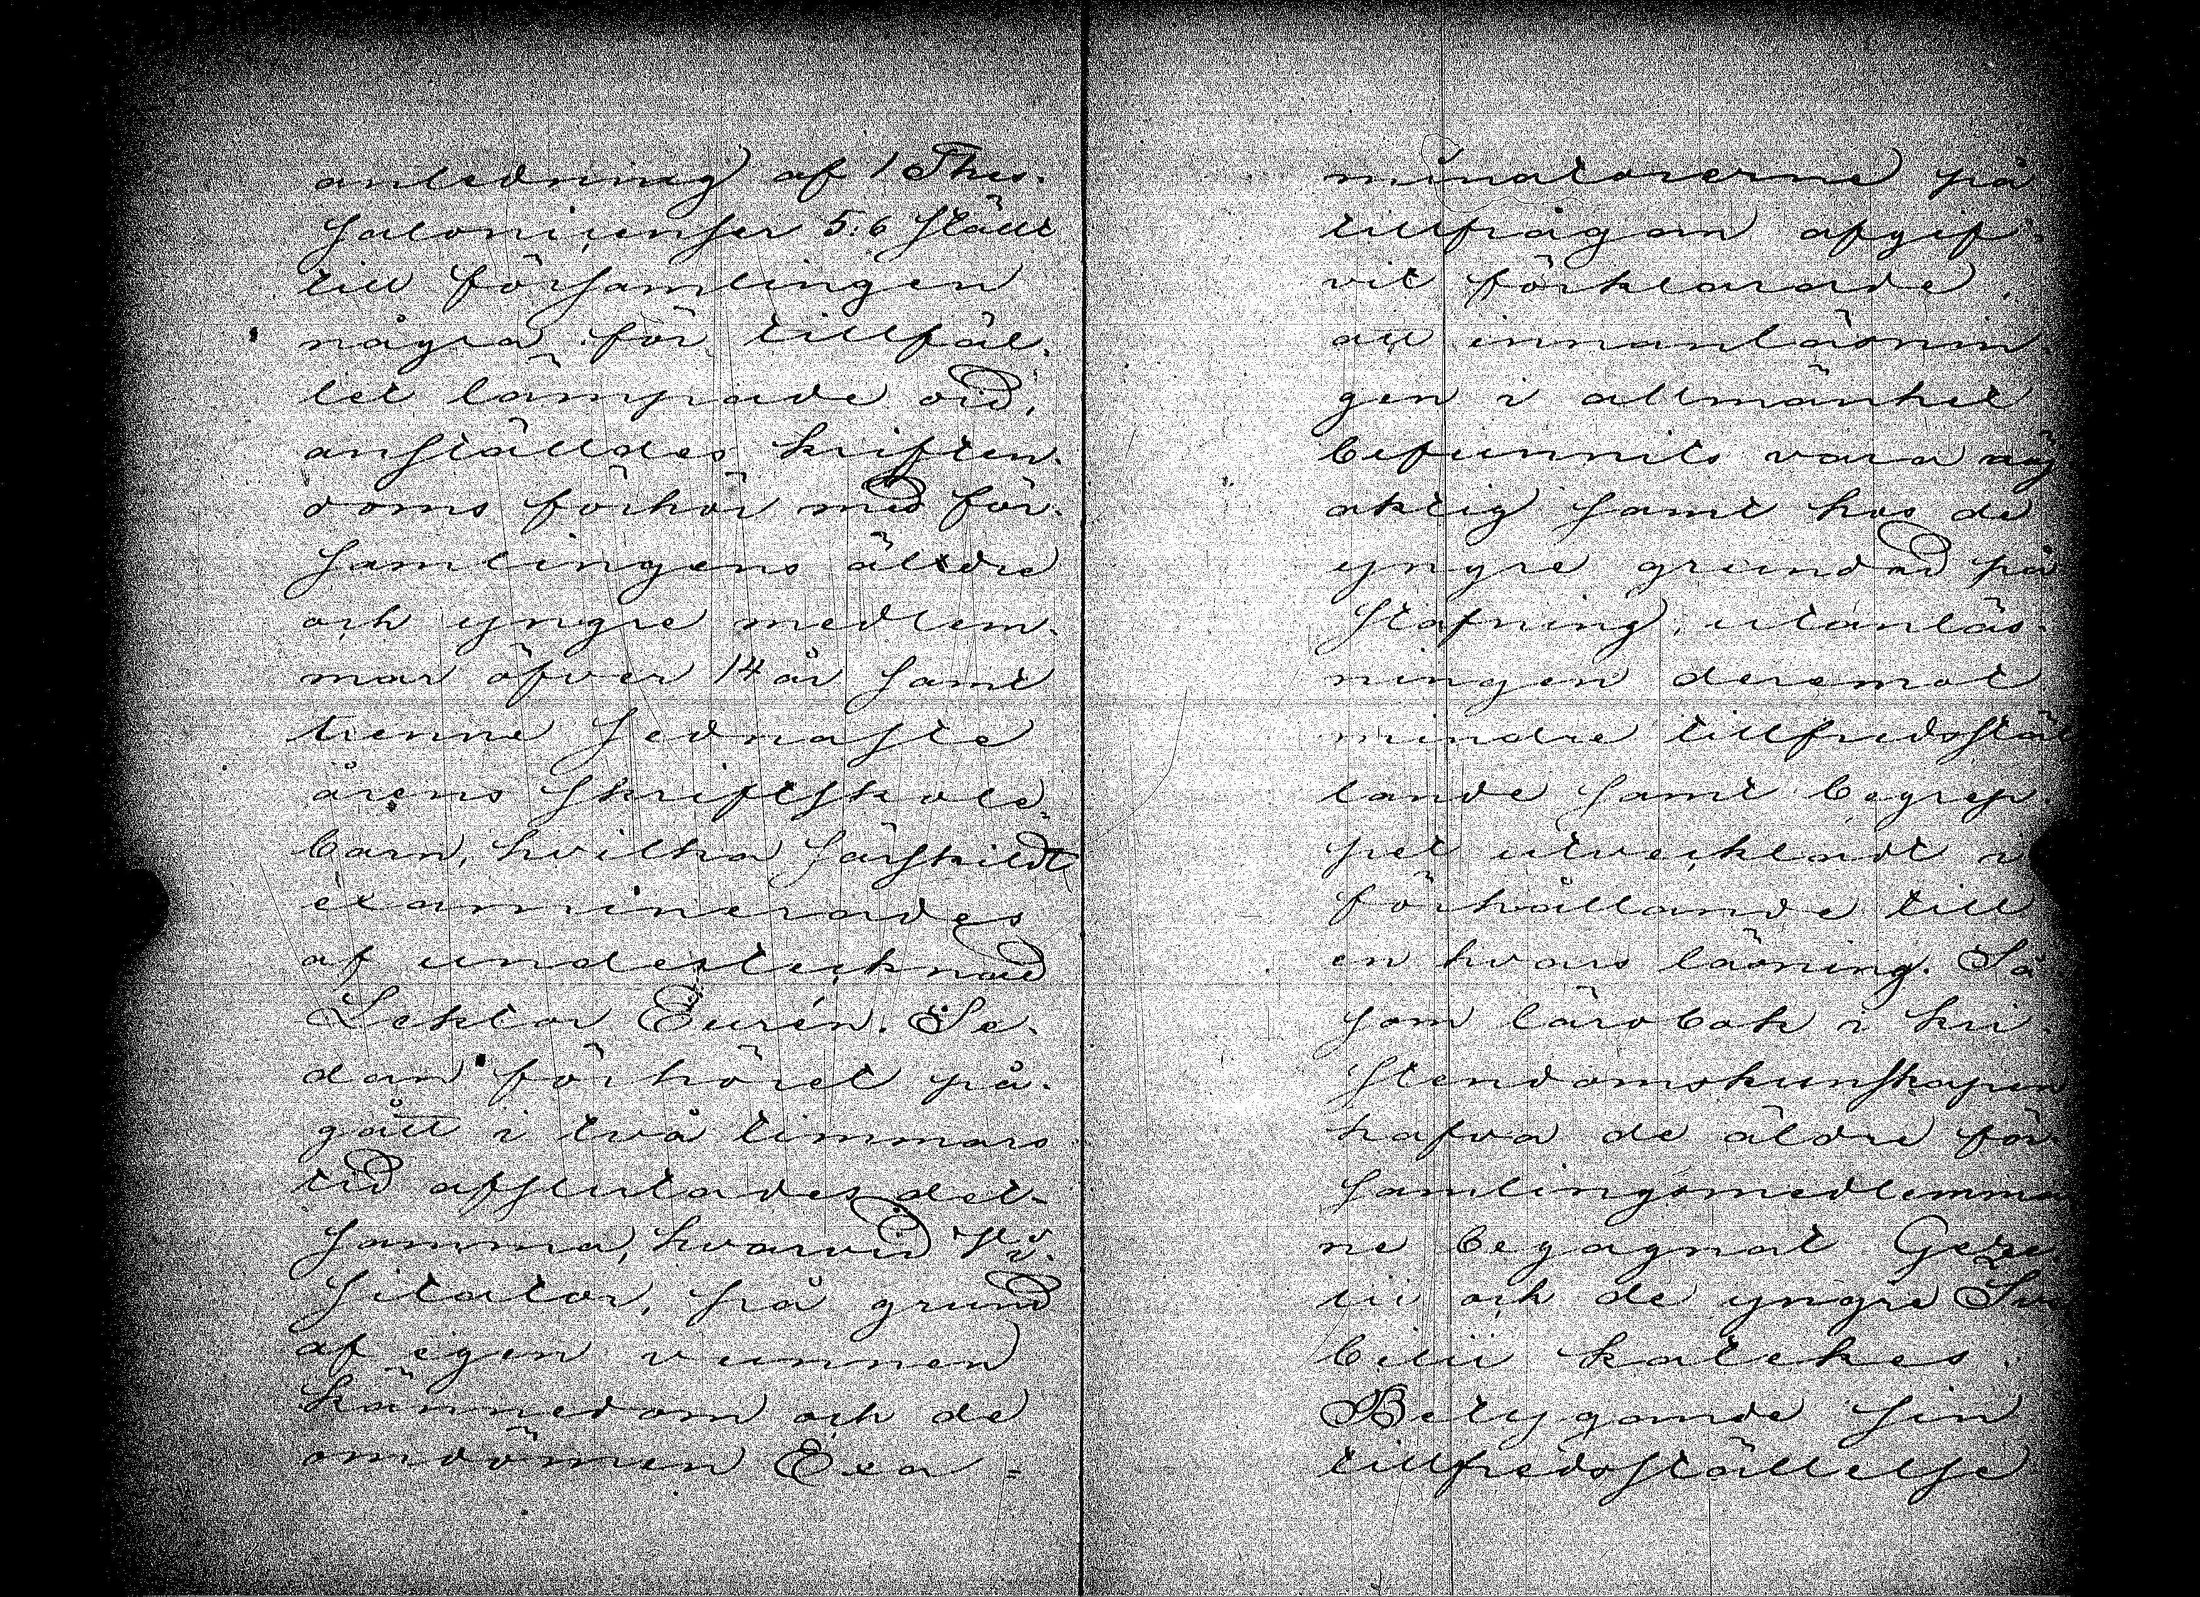 anledning af 1 Thes-
saloniienser 5:6 ställt
till församlingen
några för tillfäl-
let lämpade ord,
anställdes kristen-
doms förhör med för-
samlingens äldre
och yngre medlem-
mar öfver 14 år samt
trenne sednaste
årens skriftskole-
barn, hvilka särskildt
examinerades
af undertecknad
Lektor Eurén. Se-
dan förhöret på-
gått i två timmars
tid afslutades det-
samma, hvarvid Vi-
sitator, på grund
af egen vunnen
kännedom och de
omdömen Exa-
minatorerne på
tillfrågan afgif-
vit förklarade,
att innanläsnin-
gen i allmänhet
befunnits vara nöj
aktig samt hos de
yngre grundad på
stafning, utanläs-
ningen deremot
mindre tillfredsstäl
lande samt begrep-
pet utveckladt i
förhållande till
en hvars läsning. Så
som lärobok i kri-
stendomskunskapen
hafva de äldre för-
samlingsmedlemmar
ne begagnat Geze-
lii och de yngre Sve
bilii katekes.
Betygande sin
tillfredsställelse